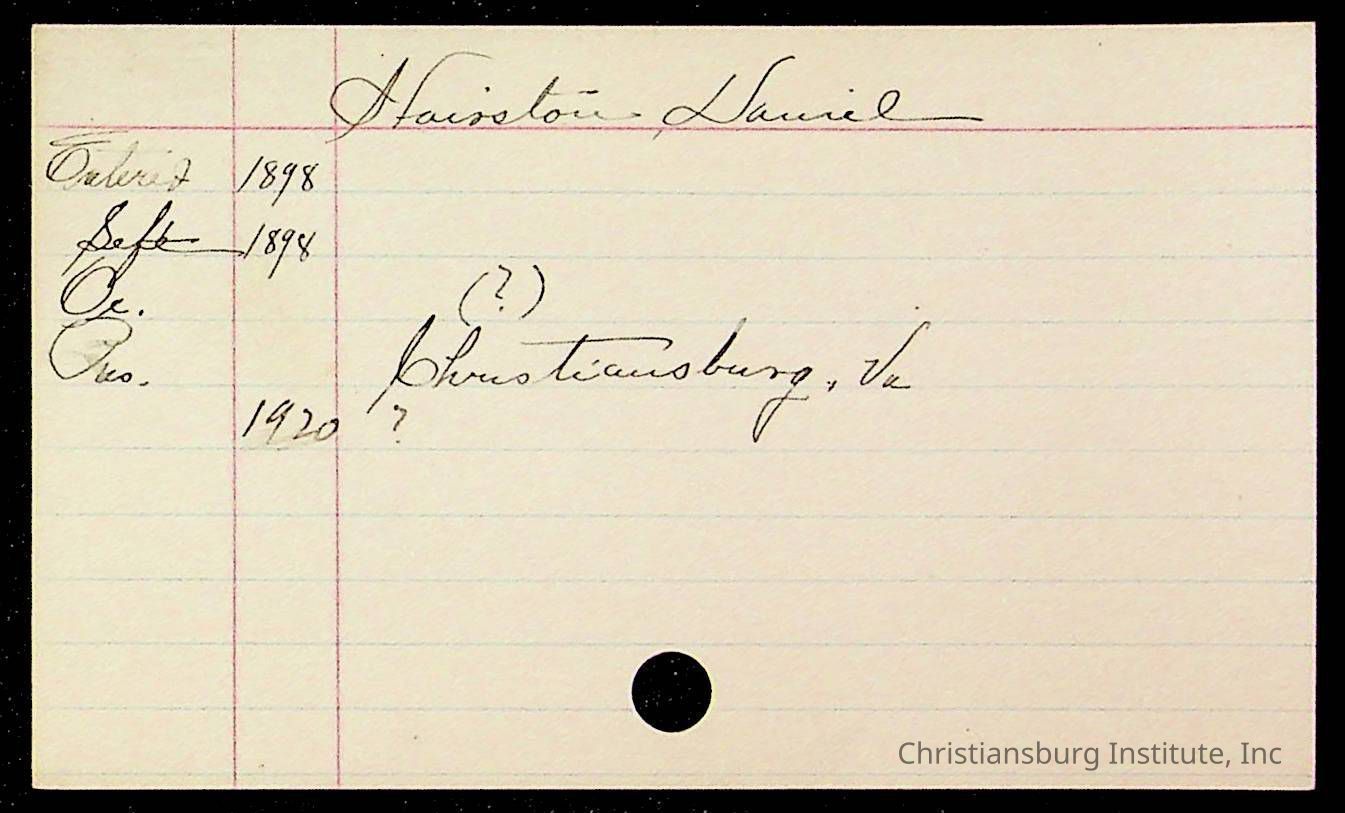 Hairston, Daniel
Entered 1898
Left 1898
Oc. (?)
Res. Christiansburg, Va
1920 ?
Christiansburg Institute, Inc